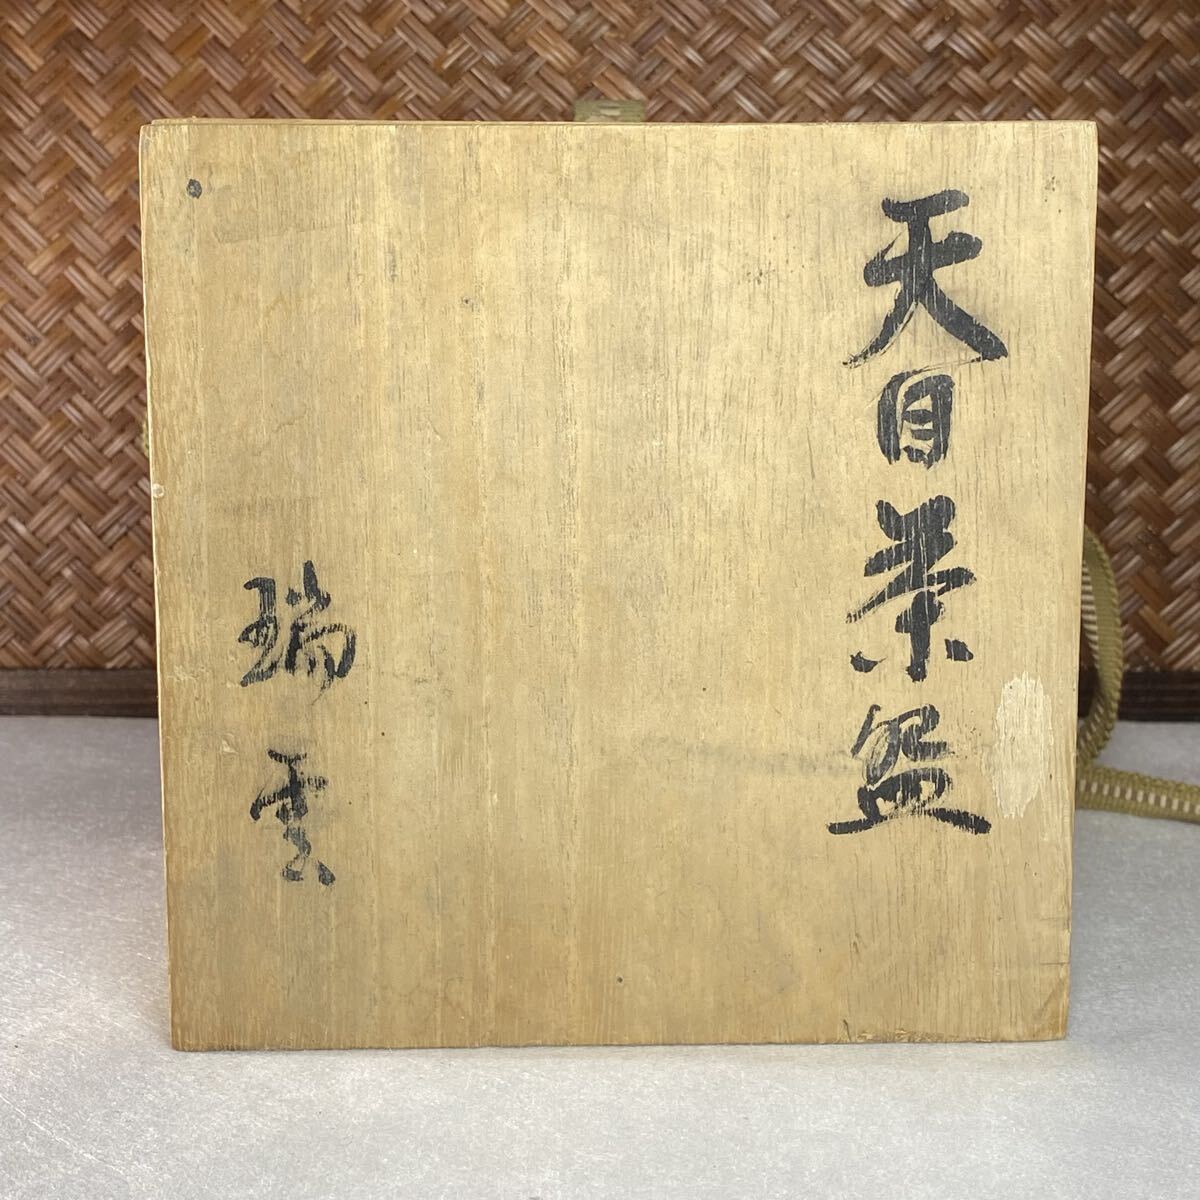 天目茶盌
瑞雲